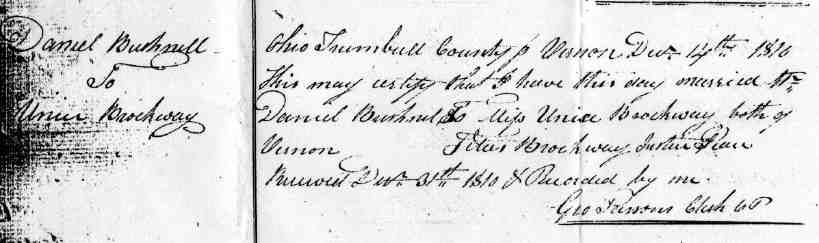 Daniel Bushnell
To
Unice Brockway
Ohio Trumbull County ss Vernon Decr 14th 1810
This may certify that I have this day married Mr
Daniel Bushnel To Miss Unice Brockway both of
Vernon Titus Brockway Justice Peace
Received Decr 31th 1810 & Recorded by me
Geo Parsons Clerk CP